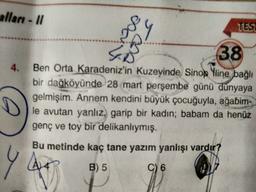 alları - II
TEST
38
4. Ben Orta Karadeniz'in Kuzeyinde Sinop İline bağlı
bir dağköyünde 28 mart perşembe günü dünyaya
gelmişim. Annem kendini büyük çocuğuyla, ağabim-
le avutan yarılız, garip bir kadın; babam da henüz
genç ve toy bir delikanlıymış.
Bu metinde kaç tane yazım yanlışı vardır?
A) 4 B) 5 C) 6